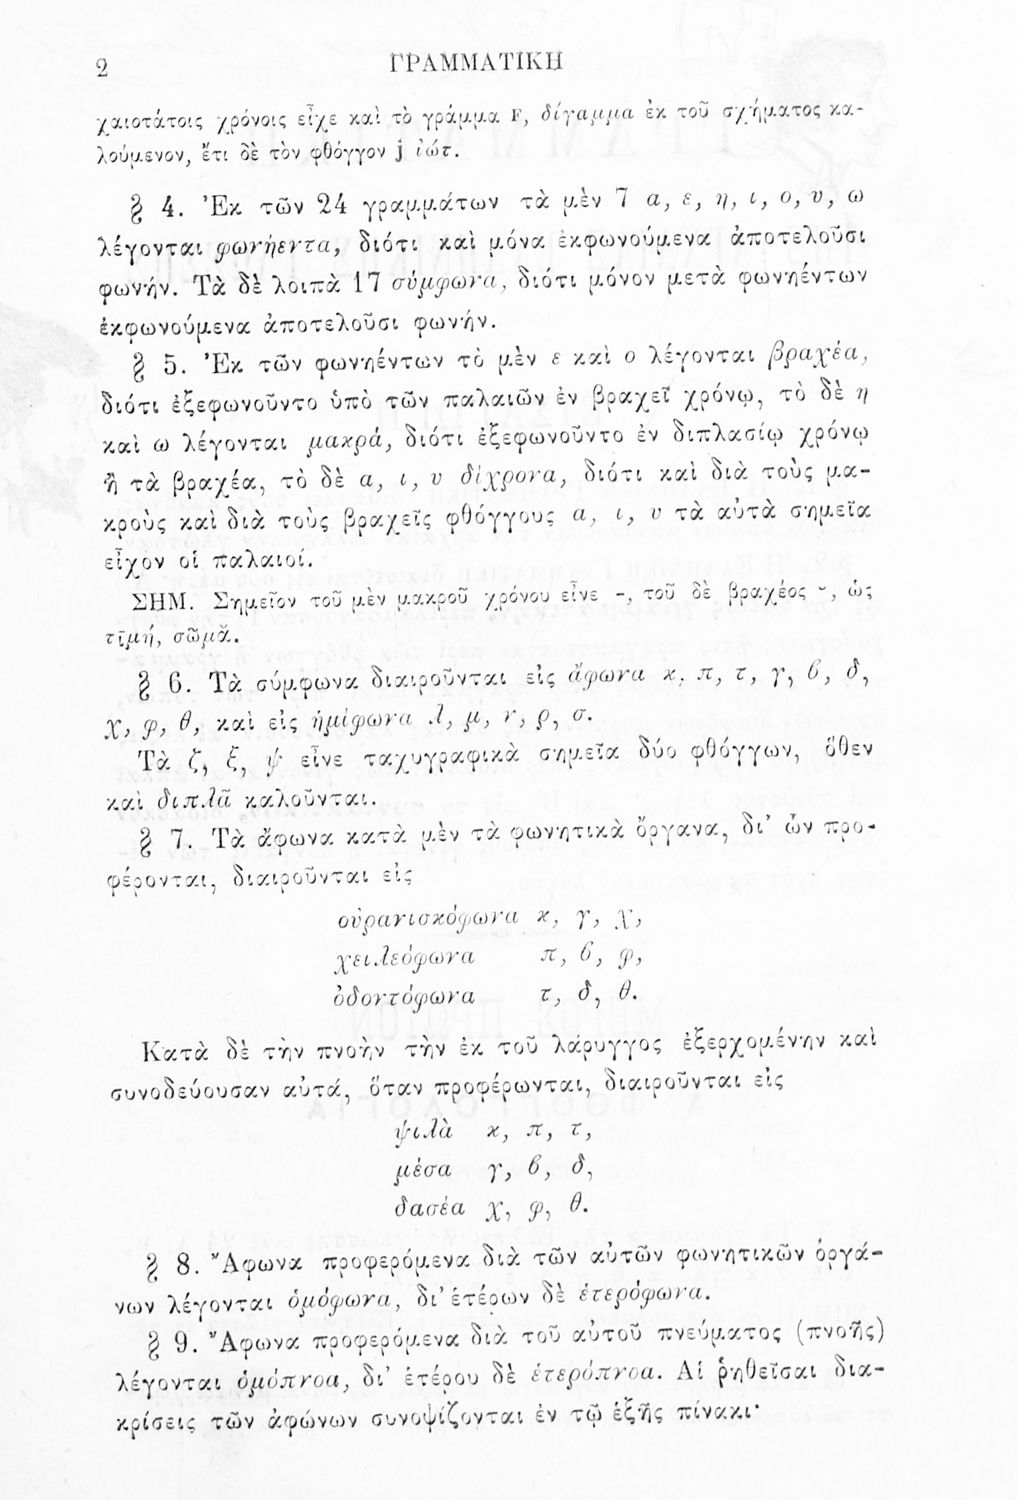 2 ΓΡΑΜΜΑΤΙΚΗ
χαιοτάτοις χρόνοις εἶχε καὶ τὸ γράμμα F, δίγαμμα ἐκ τοῦ σχήματος κα-
λούμενον, ἔτι δὲ τὸν φθόγγον j ἰώτ.
§ 4. Ἐκ τῶν 24 γραμμάτων τὰ μὲν 7 α, ε, η, ι, ο, υ, ω
λέγονται φωνήεντα, διότι καὶ μόνα ἐκφωνούμενα ἀποτελοῦσι
φωνήν. Τὰ δὲ λοιπὰ 17 σύμφωνα, διότι μόνον μετὰ φωνηέντων
ἐκφωνούμενα ἀποτελοῦσι φωνήν.
§ 5. Ἐκ τῶν φωνηέντων τὸ μὲν ε καὶ ο λέγονται βραχέα,
διότι ἐξεφωνοῦντο ὑπὸ τῶν παλαιῶν ἐν βραχεῖ χρόνῳ, τὸ δὲ η
καὶ ω λέγονται μακρά, διότι ἐξεφωνοῦντο ἐν διπλασίῳ χρόνῳ
ἢ τὰ βραχέα, τὸ δὲ α, ι, υ δίχρονα, διότι καὶ διὰ τοὺς μα-
κροὺς καὶ διὰ τοὺς βραχεῖς φθόγγους α, ι, υ τὰ αὐτὰ σημεῖα
εἶχον οἱ παλαιοί.
ΣΗΜ. Σημεῖον τοῦ μὲν μακροῦ χρόνου εἶνε -, τοῦ δὲ βραχέος ˘, ὡς
τῑμή, σῶμᾰ.
§ 6. Τὰ σύμφωνα διαιροῦνται εἰς ἄφωνα κ, π, τ, γ, ϐ, δ,
χ, φ, θ, καὶ εἰς ἡμίφωνα λ, μ, ν, ρ, σ.
Τὰ ζ, ξ, ψ εἶνε ταχυγραφικὰ σημεῖα δύο φθόγγων, ὅθεν
καὶ διπλᾶ καλοῦνται.
§ 7. Τὰ ἄφωνα κατὰ μὲν τὰ φωνητικὰ ὄργανα, δι' ὧν προ-
φέρονται, διαιροῦνται εἰς
οὐρανισκόφωνα κ, γ, χ,
χειλεόφωνα π, ϐ, φ,
ὀδοντόφωνα τ, δ, θ.
Κατὰ δὲ τὴν πνοὴν τὴν ἐκ τοῦ λάρυγγος ἐξερχομένην καὶ
συνοδεύουσαν αὐτά, ὅταν προφέρωνται, διαιροῦνται εἰς
ψιλὰ κ, π, τ,
μέσα γ, ϐ, δ,
δασέα χ, φ, θ.
§ 8. Ἄφωνα προφερόμενα διὰ τῶν αὐτῶν φωνητικῶν ὀργά-
νων λέγονται ὁμόφωνα, δι' ἑτέρων δὲ ἑτερόφωνα.
§ 9. Ἄφωνα προφερόμενα διὰ τοῦ αὐτοῦ πνεύματος (πνοῆς)
λέγονται ὁμόπνοα, δι' ἑτέρου δὲ ἑτερόπνοα. Αἱ ῥηθεῖσαι δια-
κρίσεις τῶν ἀφώνων συνοψίζονται ἐν τῷ ἑξῆς πίνακι·